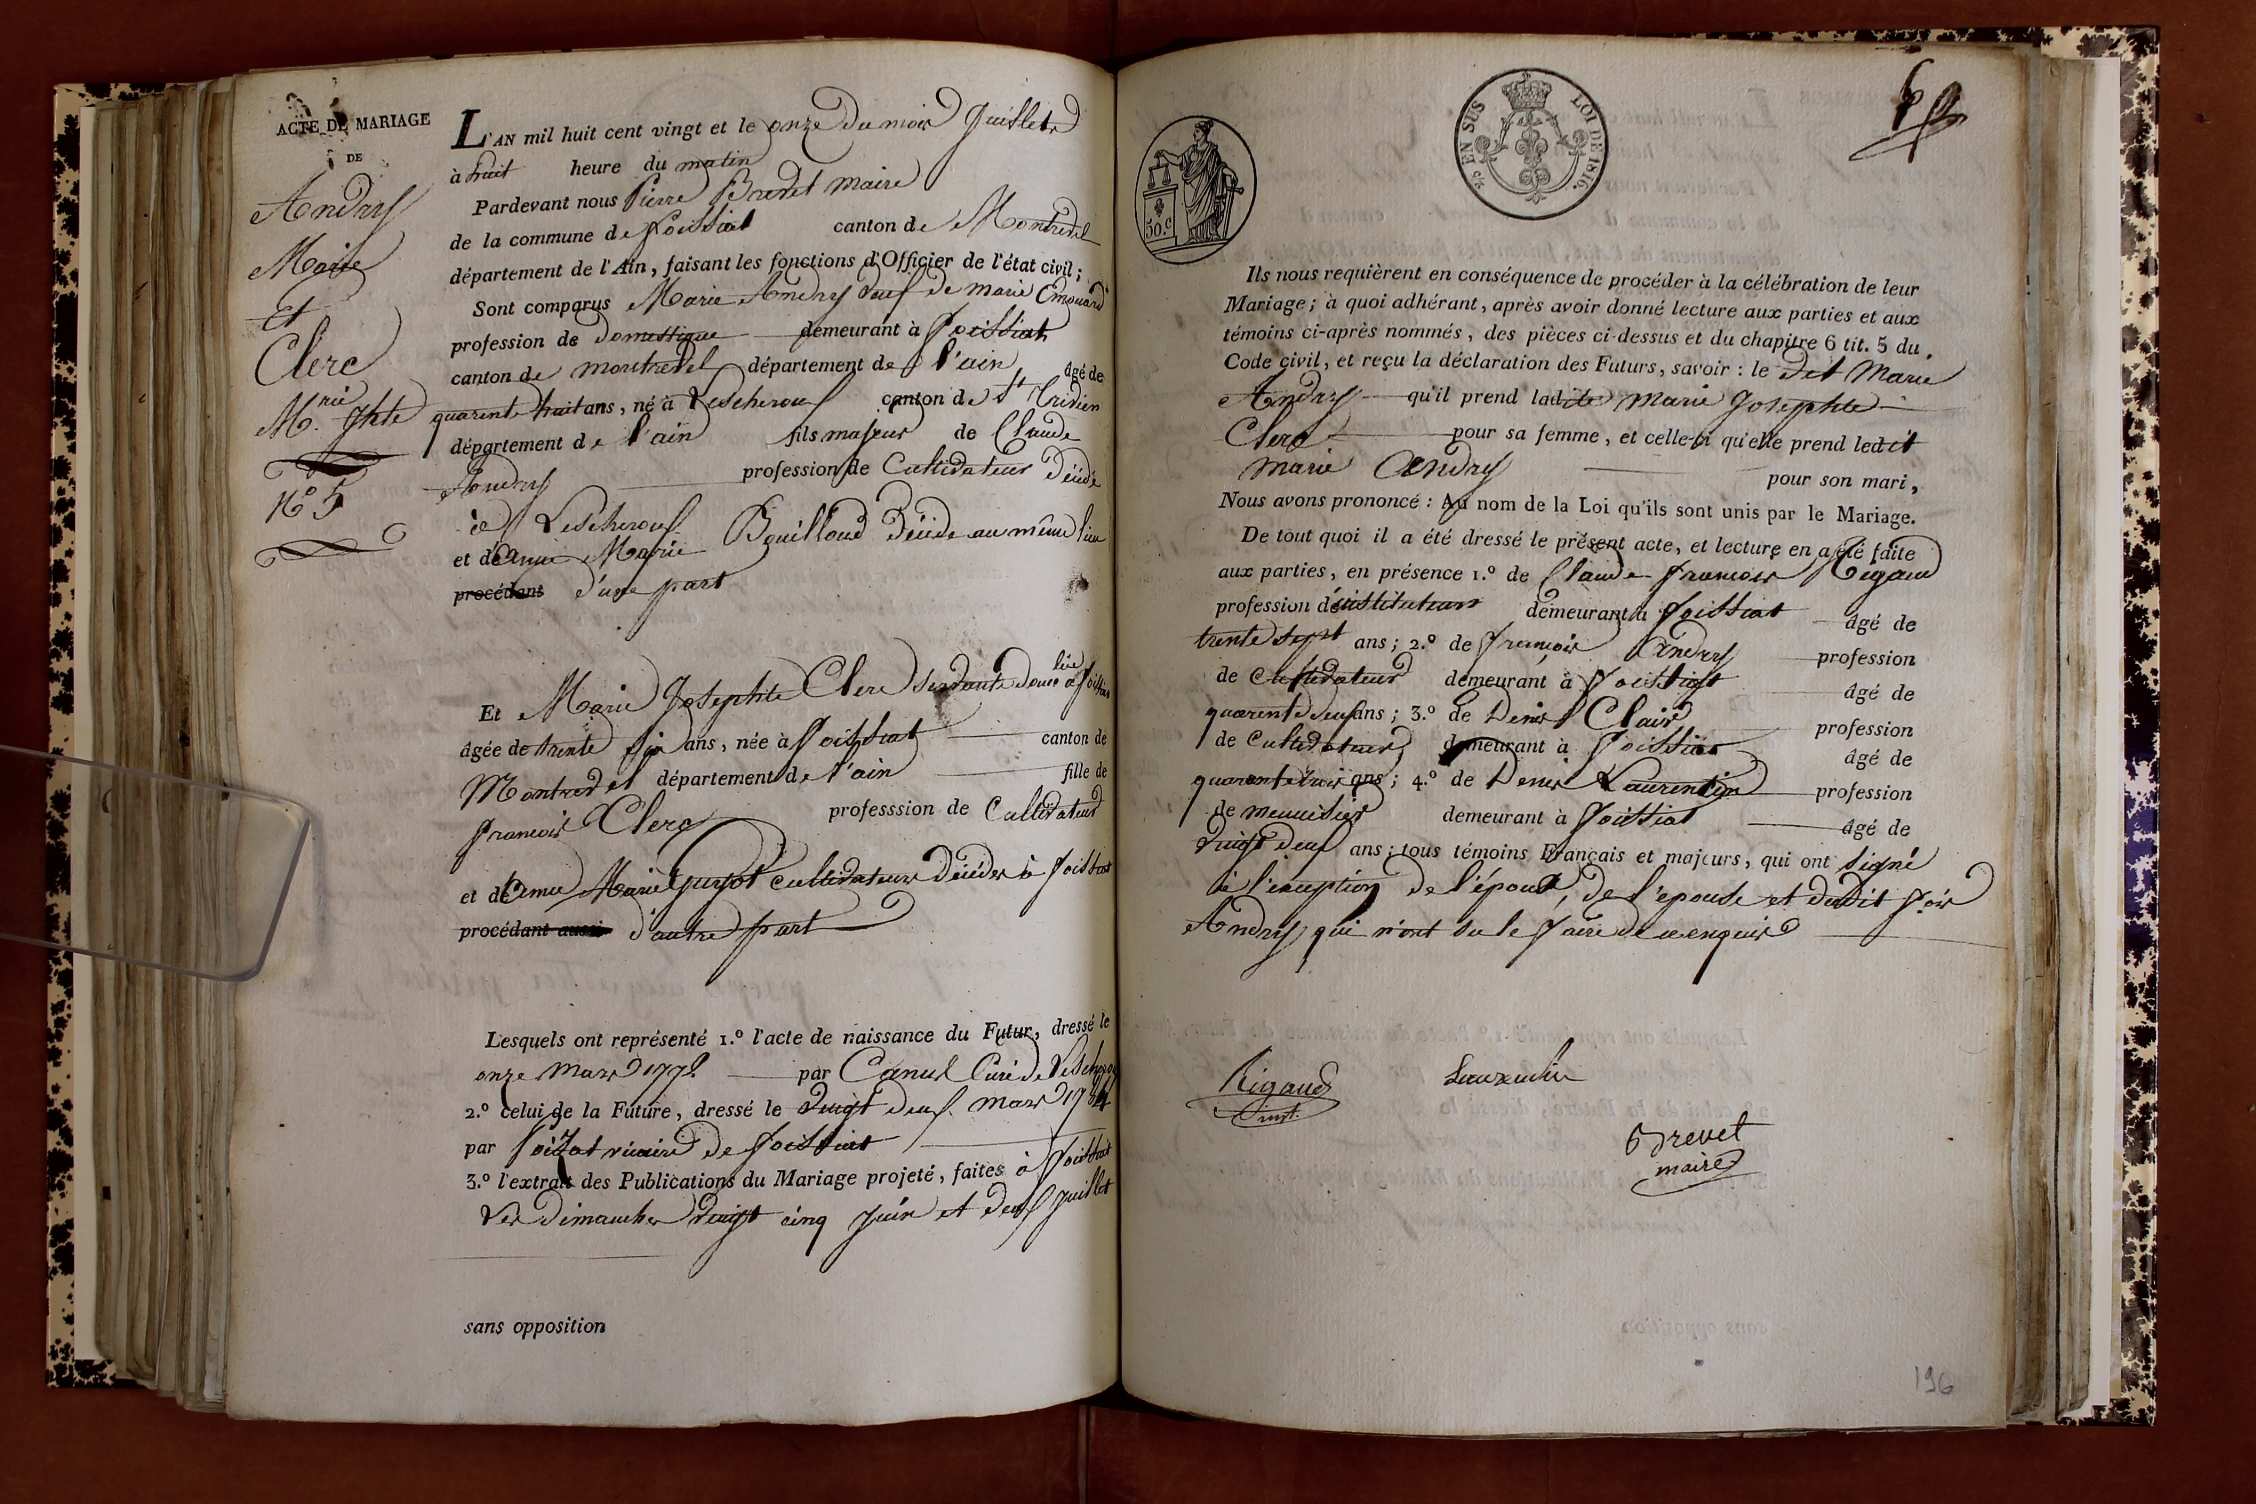 ACTE DE MARIAGE
DE
Andry
Marie
Et
Clerc
M.rie Jphte
N.o 5
L'AN mil huit cent vingt et le onze du mois Juillet
à huit heure du matin
Pardevant nous Pierre Brevet maire
de la commune de foissiat canton de Montrevel
département de l'Ain, faisant les fonctions d'Officier de l'état civil;
Sont comparus Marie Andry veuf de marie
profession de Domestique demeurant à foissiat
canton de montrevel département de l'ain âgé de
quarente huit ans, né à Lescheroux canton de St Trivier
département de l'ain fils majeur de Claude
Andry profession de Cultivateur Décédé
à Lescheroux
et de Marie Bouilloud Décédé au même lieu
procédant d'une part
Et Marie Josephte Clerc servante dom.liée à foissiat
âgée de trente six ans, née à foissiat canton de
Montrevel département de l'ain fille de
francois Clerc professsion de Cultivateur
et de Marie Guyot cultivateurs Décédés à foissiat
procédant aussi d'autre part
Lesquels ont représenté 1.o l'acte de naissance du Futur, dressé le
onze Mars 1772 par Curé de Lescheroux
2.o celui de la Future, dressé le vingt deux mars 1784
par vicaire de foissiat
3.o l'extrait des Publications du Mariage projeté, faites à foissiat
les dimanches vingt cinq Juin et deux Juillet
sans opposition
50.c
EN SUS
LOI DE 1816.
Ils nous requièrent en conséquence de procéder à la célébration de leur
Mariage; à quoi adhérant, après avoir donné lecture aux parties et aux
témoins ci-après nommés, des pièces ci-dessus et du chapitre 6 tit. 5 du
Code civil, et reçu la déclaration des Futurs, savoir: le dit Marie
Andry qu'il prend ladite marie Josephte
Clerc pour sa femme, et celle-ci qu'elle prend ledit
marie Andry pour son mari,
Nous avons prononcé: Au nom de la Loi qu'ils sont unis par le Mariage.
De tout quoi il a été dressé le présent acte, et lecture en a été faite
aux parties, en présence 1.o de Claude francois Rigaud
profession d'instituteur demeurant à foissiat âgé de
trente sept ans; 2.o de francois Andry profession
de cultivateur demeurant à foissiat âgé de
quarente deux ans; 3.o de Denis Clair profession
de Cultivateur demeurant à foissiat âgé de
quarante trois ans; 4.o de Denis Laurentin profession
de menuisier demeurant à foissiat âgé de
vingt deux ans; tous témoins Français et majeurs, qui ont signé
à l'exception de l'époux, de l'epouse et dudit f.ois
Andry qui n'ont su le faire de ce enquis
Rigaud
inst.
Laurentin
Brevet
maire
196